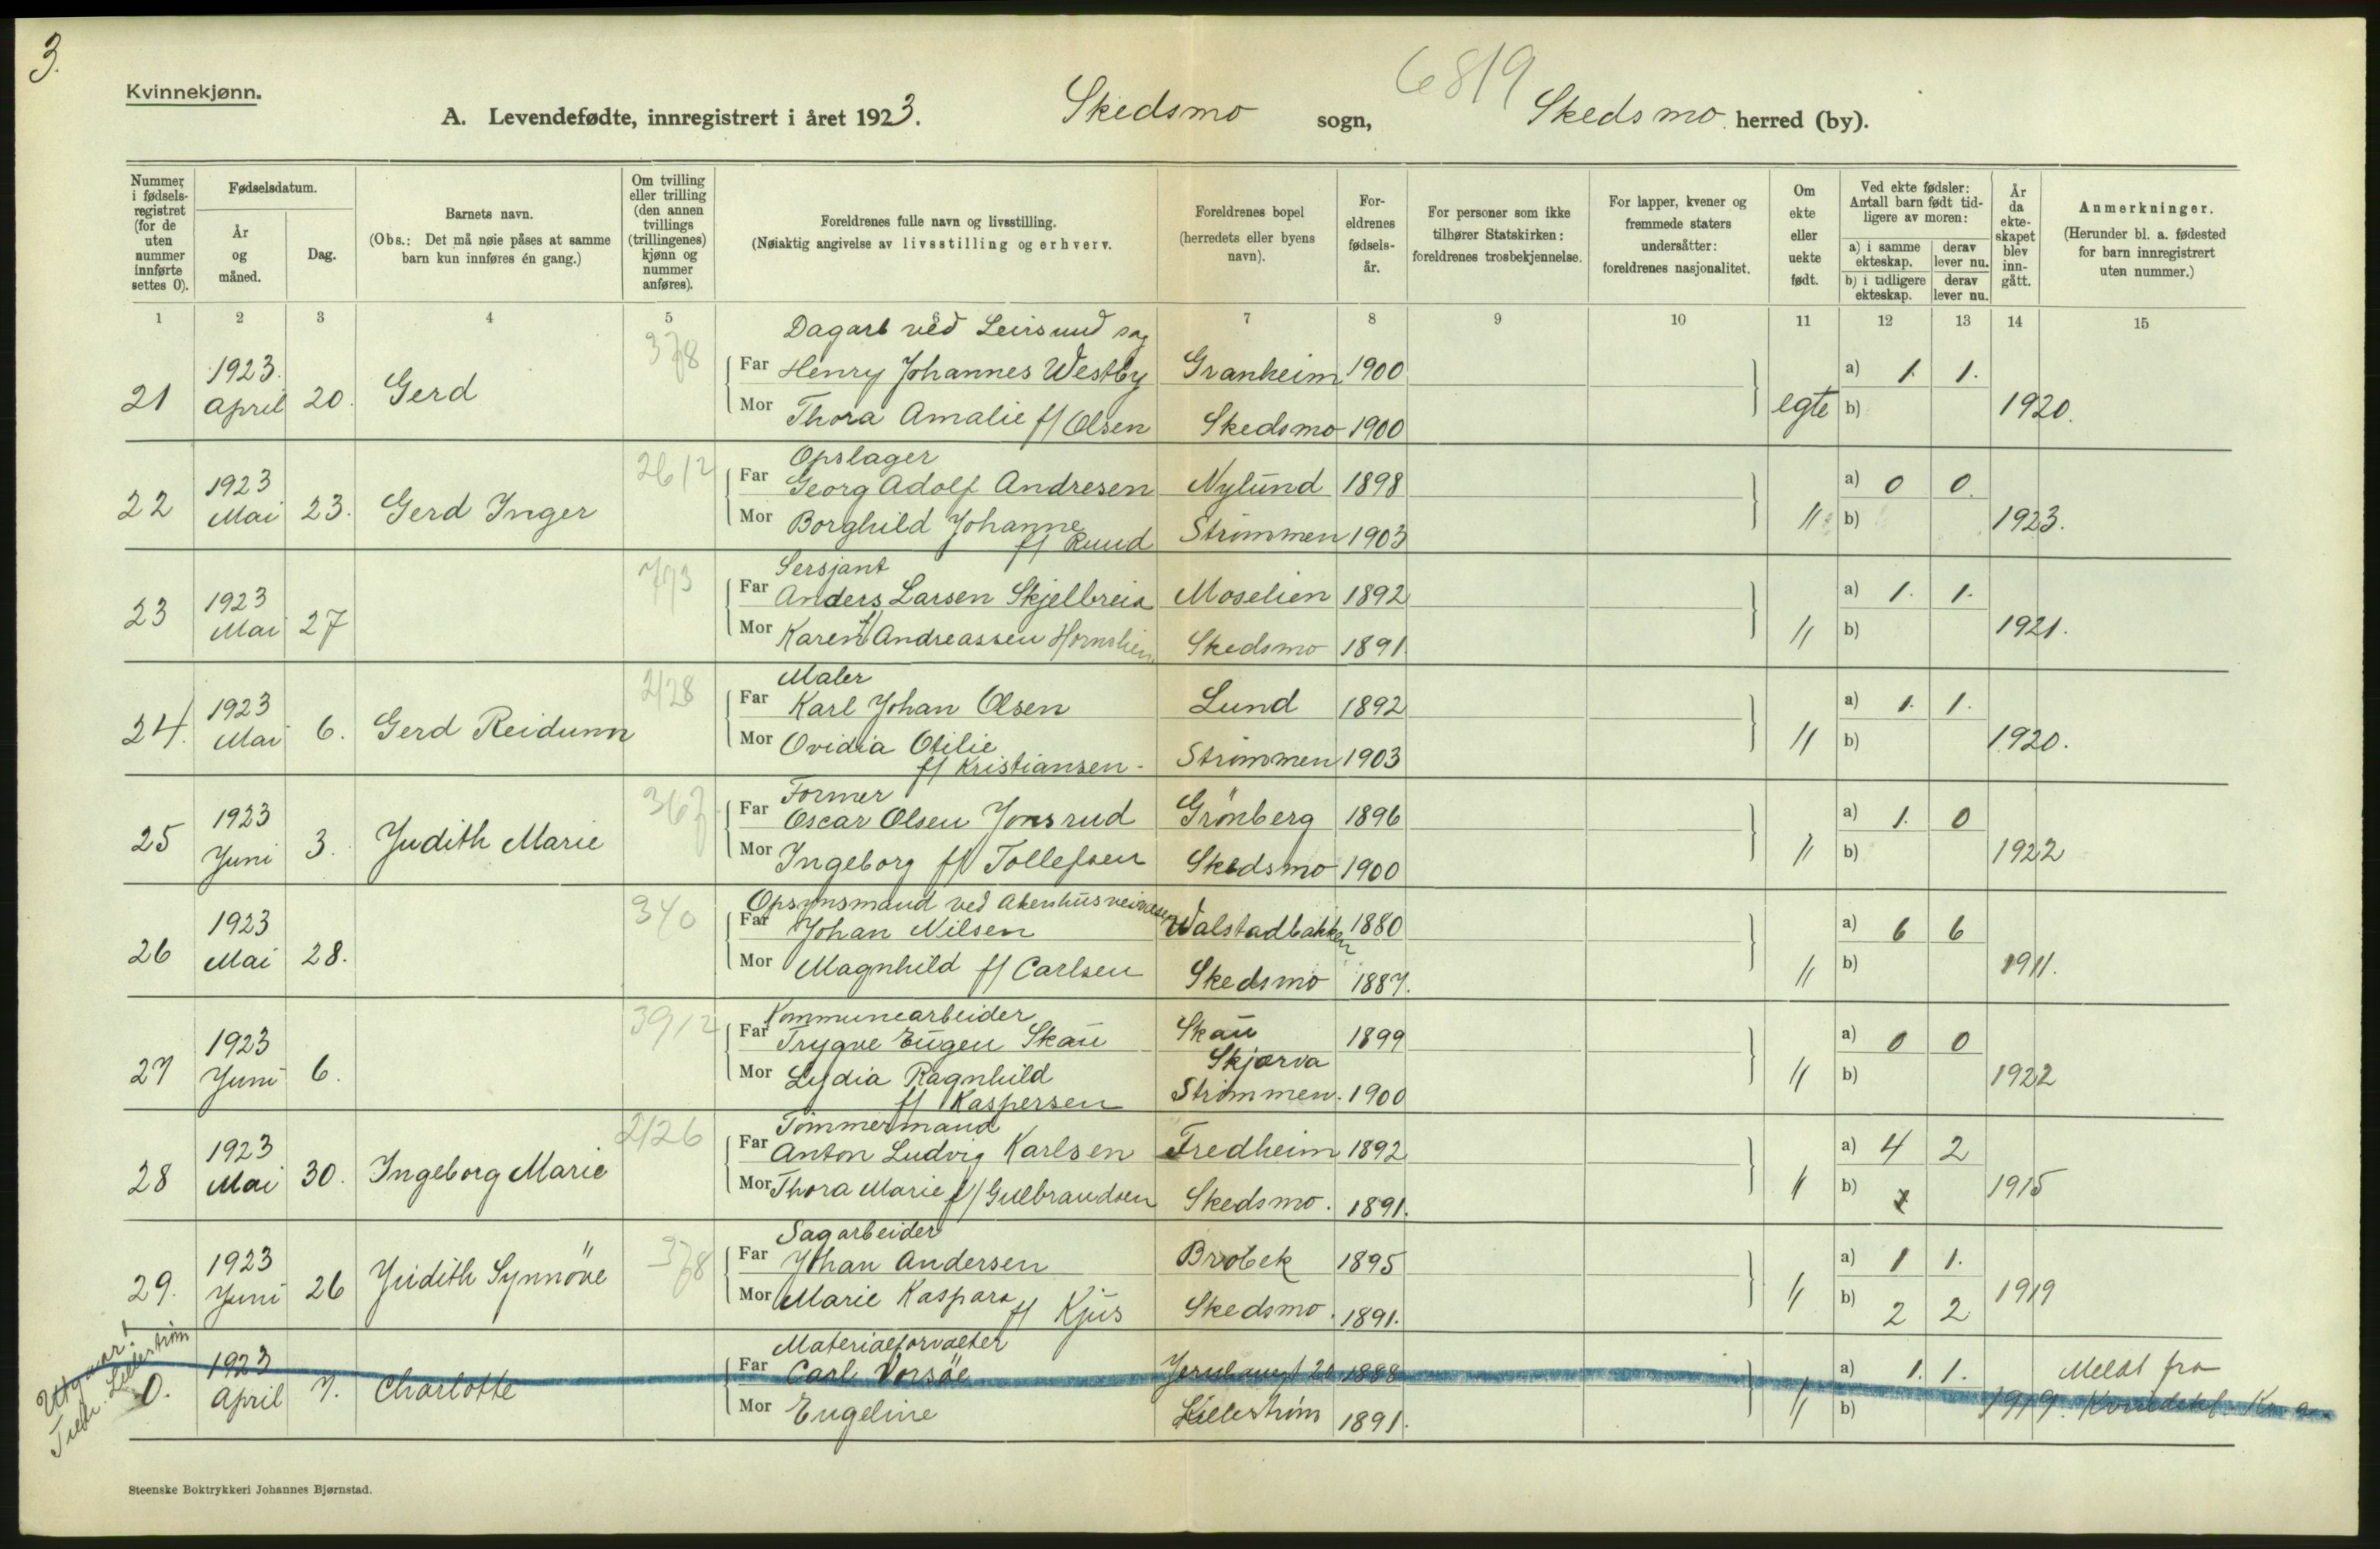 3.
Kvinnekjønn.
6819
A. Levendefødte, innregistrert i året 1923. Skedsmo sogn, Skedsmo herred (by).
Nummer i fødsels-registret (for de uten nummer innførte settes 0).
Fødselsdatum.
År og måned.
Dag.
Barnets navn.
(Obs.: Det må nøie påses at samme barn kun innføres én gang.)
Om tvilling eller trilling (den annen tvillings (trillingenes) kjønn og nummer anføres).
Foreldrenes fulle navn og livsstilling.
(Nøiaktig angivelse av livsstilling og erhverv.
Foreldrenes bopel (herredets eller byens navn).
For-eldrenes fødsels-år.
For personer som ikke tilhører Statskirken: foreldrenes trosbekjennelse.
For lapper, kvener og fremmede staters undersåtter: foreldrenes nasjonalitet.
Om ekte eller uekte født.
Ved ekte fødsler: Antall barn født tid-ligere av moren:
a) i samme ekteskap.
derav lever nu.
b) i tidligere ekteskap.
derav lever nu.
År da ekte-skapet blev inn-gått.
Anmerkninger.
(Herunder bl. a. fødested for barn innregistrert uten nummer.)
1 2 3 4 5 6 7 8 9 10 11 12 13 14 15
Dagarb ved Leirsund sag
21 1923. April 20. Gerd 378 Far Henry Johannes Westby Granheim 1900 a) 1. 1.
Mor Thora Amalie f/ Olsen Skedsmo 1900 egte b) 1920.
Opslager
22 1923 Mai 23. Gerd Inger 2612 Far Georg Adolf Andresen Nylund 1898 a) 0 0.
Mor Borghild Johanne f/ Ruud Strømmen 1903 " b) 1923.
Sersjant
23 1923 Mai 27 773 Far Anders Larsen Skjelbreia Moselien 1892 a) 1. 1.
Mor Karen f/ Andreassen Hornslien Skedsmo 1891. " b) 1921.
Maler
24. 1923 Mai 6. Gerd Reidunn 2128 Far Karl Johan Olsen Lund 1892 a) 1. 1.
Mor Ovidia Otilie f/ Kristiansen - Strømmen 1903 " b) 1920.
Former
25 1923 Juni 3. Judith Marie 367 Far Oscar Olsen Jonsrud Grönberg 1896 a) 1. 0
Mor Ingeborg f/ Tollefsen Skedsmo 1900 " b) 1922
Opsynsmand ved Akershus veivæsen
26 1923 Mai 28. 340 Far Johan Nilsen Walstadbakken 1880 a) 6 6
Mor Magnhild f/ Carlsen Skedsmo 1887. " b) 1911.
Kommunearbeider
27 1923 Juni 6. 3912 Far Trygve Eugen Skau Skau 1899 a) 0 0
Skjærva
Mor Lydia Ragnhild f/ Kaspersen Strømmen. 1900 " b) 1922
Tømmermand
28 1923 Mai 30. Ingeborg Marie 2126 Far Anton Ludvig Karlsen Fredheim 1892 a) 4 2
Mor Thora Marie f/ Gulbrandsen Skedsmo. 1891. " b) 1915
Sagarbeider
29. 1923 Juni 26 Judith Synnöve 378 Far Johan Andersen Brobek 1895 a) 1 1.
Mor Marie Kaspara f/ Kjus Skedsmo. 1891. " b) 2 2 1919
Materialforvalter
Utgaar!
Lillestrøm
0. 1923 April 7. Charlotte Far Carl Vorsöe 20 1888 a) 1. 1. Meldt fra
Mor Engeline Lillestrøm 1891. " b) 1919.
Steenske Boktrykkeri Johannes Bjørnstad.